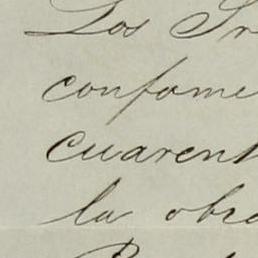 Los
confome
cuarent
la obra